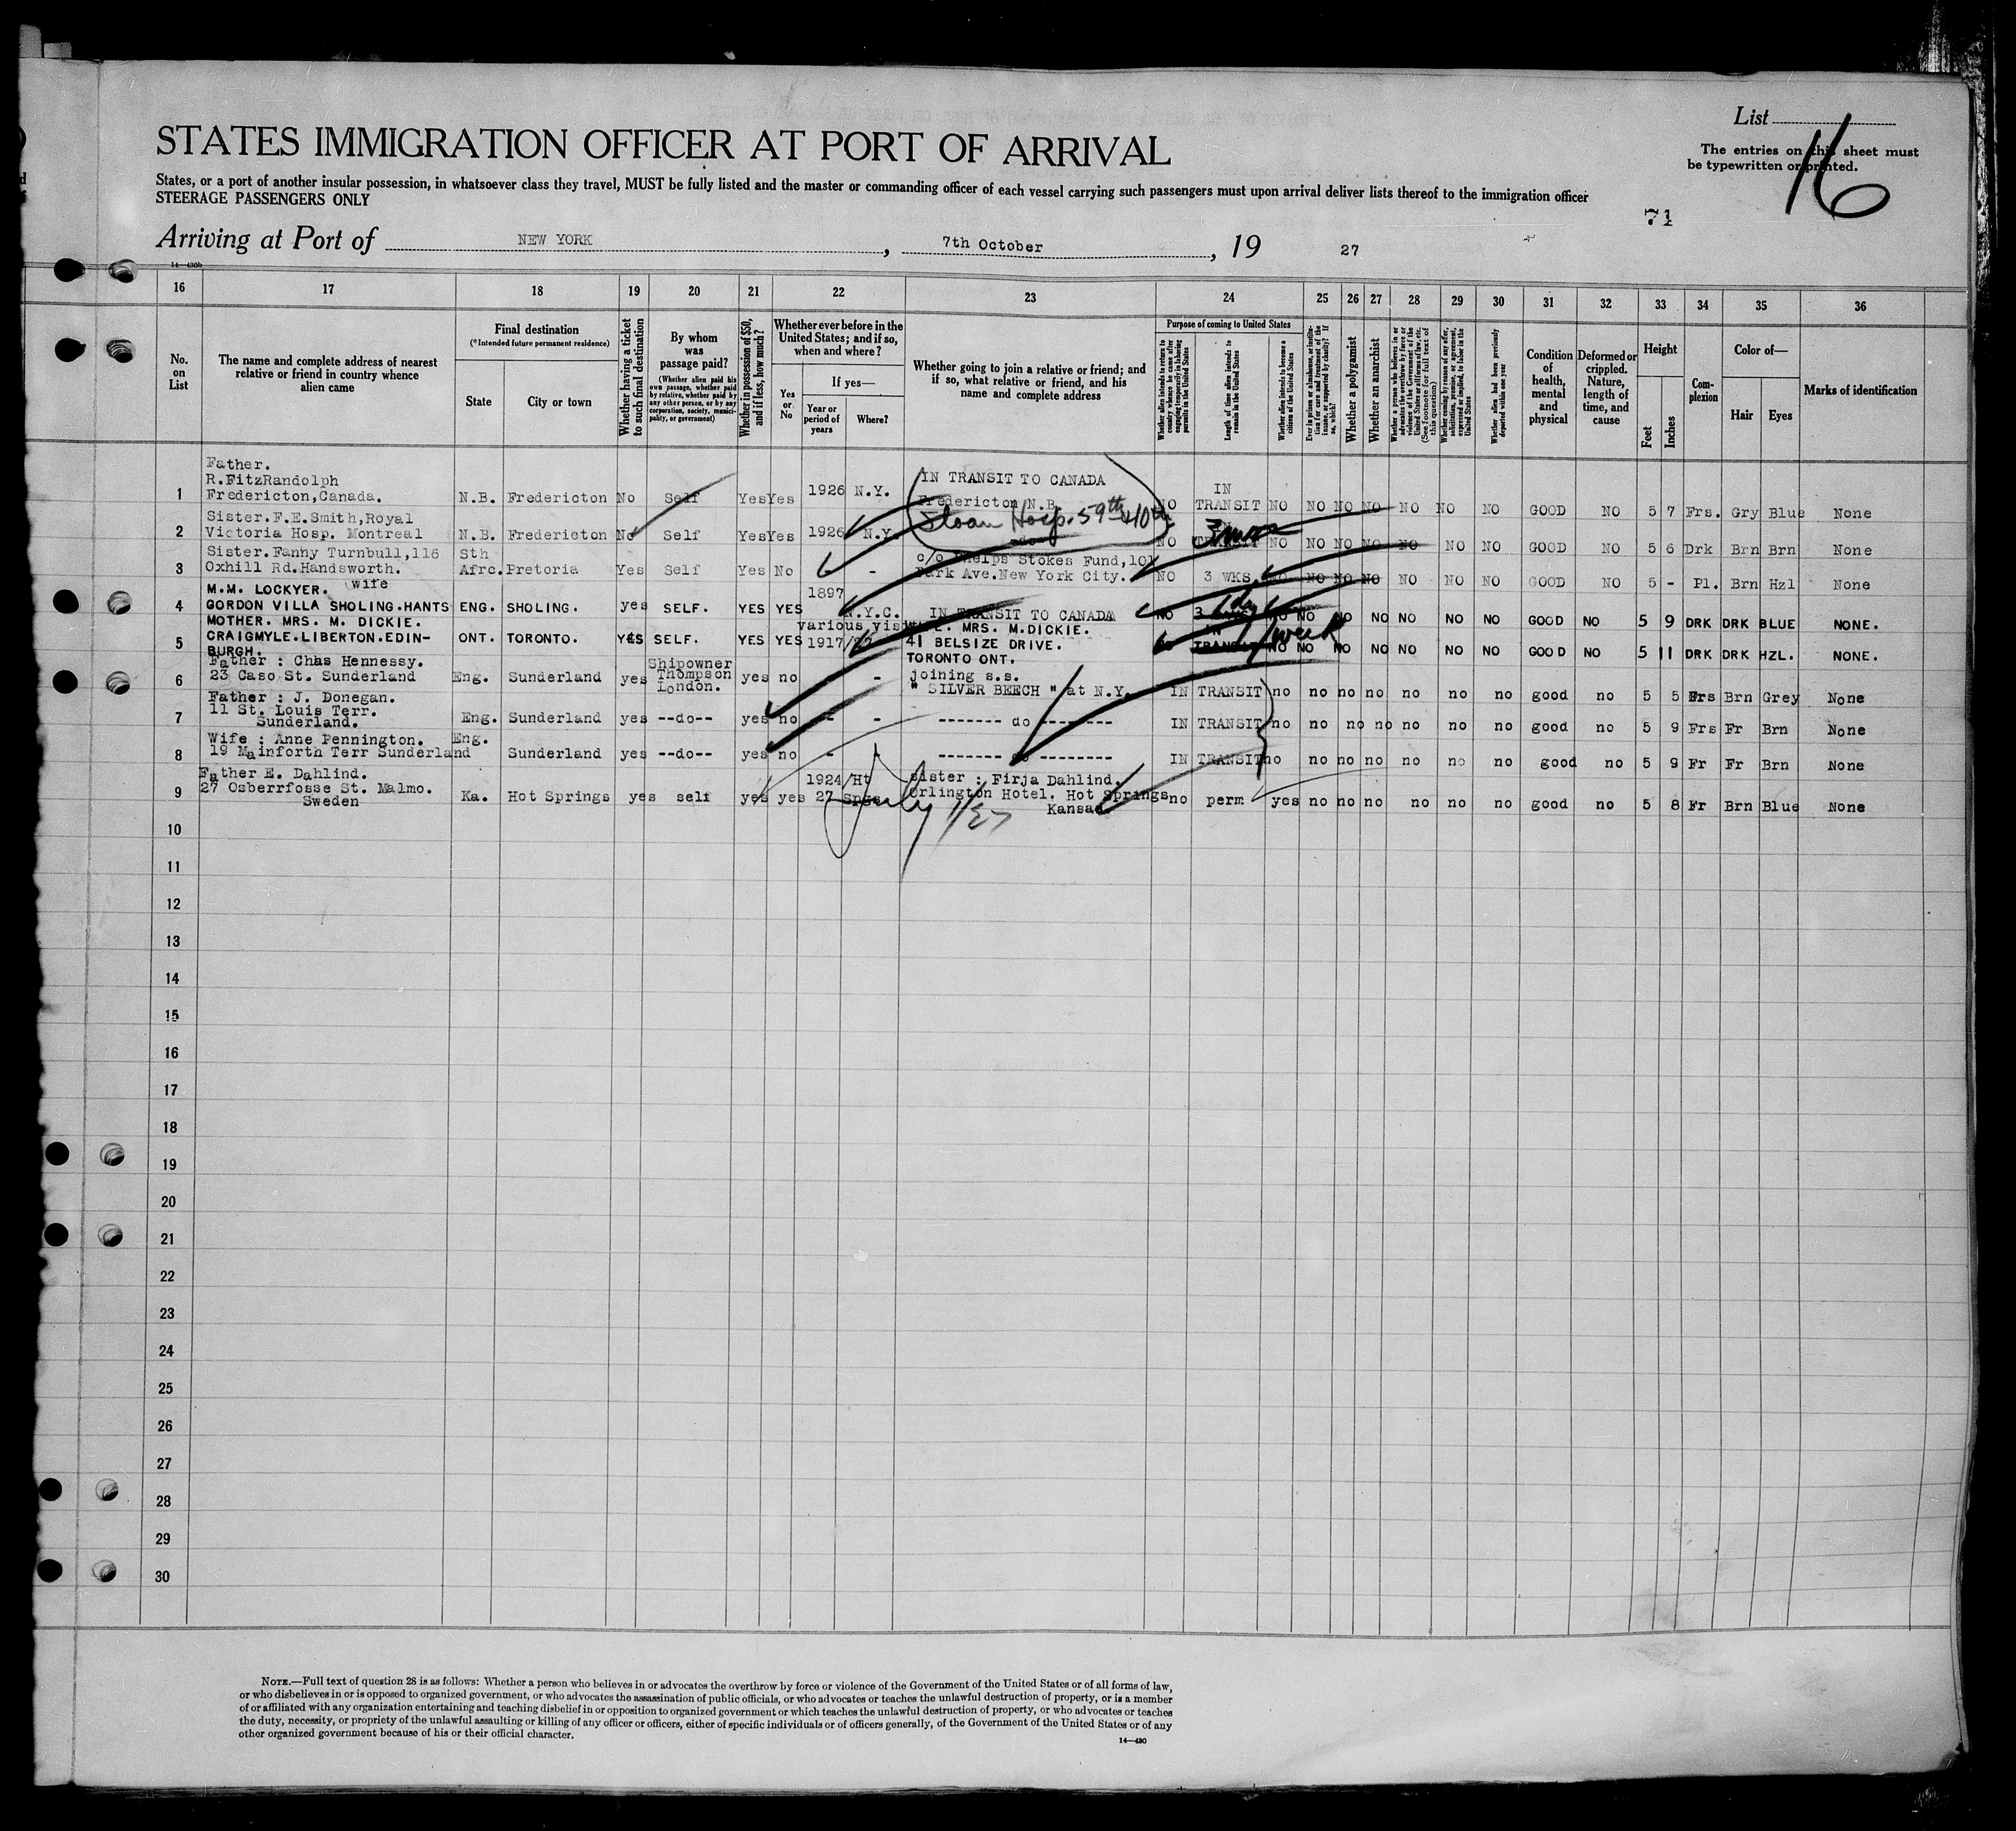 List
16
The entries on this sheet must
be typewritten or printed.
STATES IMMIGRATION OFFICER AT PORT OF ARRIVAL
States, or a port of another insular possession, in whatsoever class they travel, MUST be fully listed and the master or commanding officer of each vessel carrying such passengers must upon arrival deliver lists thereof to the immigration officer
STEERAGE PASSENGERS ONLY
71
Arriving at Port of NEW YORK, 7th October, 19 27
14—430b
16 17 18 19 20 21 22 23 24 25 26 27 28 29 30 31 32 33 34 35 36
No. on List
The name and complete address of nearest relative or friend in country whence alien came
Final destination
(*Intended future permanent residence)
State
City or town
Whether having a ticket to such final destination
By whom was passage paid?
(Whether alien paid his own passage, whether paid by relative, whether paid by any other person, or by any corporation, society, municipality, or government)
Whether in possession of $50, and if less, how much?
Whether ever before in the United States; and if so, when and where?
Yes or No
If yes—
Year or period of years
Where?
Whether going to join a relative or friend; and if so, what relative or friend, and his name and complete address
Purpose of coming to United States
Whether alien intends to return to country whence he came after engaging temporarily in laboring pursuits in the United States
Length of time alien intends to remain in the United States
Whether alien intends to become a citizen of the United States
Ever in prison or almshouse, or institution for care and treatment of the insane, or supported by charity? If so, which?
Whether a polygamist
Whether an anarchist
Whether a person who believes in or advocates the overthrow by force or violence of the Government of the United States or all forms of law, etc. (See footnote for full text of this question)
Whether coming by reason of any offer, solicitation, promise, or agreement, expressed or implied, to labor in the United States
Whether alien had been previously deported within one year
Condition of health, mental and physical
Deformed or crippled. Nature, length of time, and cause
Height
Feet
Inches
Complexion
Color of—
Hair
Eyes
Marks of identification
Father.
R.FitzRandolph
1 Fredericton,Canada. N.B. Fredericton No Self Yes Yes 1926 N.Y. IN TRANSIT TO CANADA Fredericton N.B. NO IN TRANSIT NO NO NO NO NO NO NO GOOD NO 5 7 Frs. Gry Blue None
Sister.F.E.Smith,Royal
2 Victoria Hosp. Montreal N.B. Fredericton No Self Yes Yes 1926 N.Y. Sloan Hosp. 59th & 10th NO IN TRANSIT NO NO NO NO NO NO NO GOOD NO 5 6 Drk Brn Brn None
Sister.Fanny Turnbull,116 Sth
3 Oxhill Rd.Handsworth. Afrc. Pretoria Yes Self Yes No - c/o Phelps Stokes Fund,101 Park Ave.New York City. NO 3 WKS. NO NO NO NO NO NO NO GOOD NO 5 - Pl. Brn Hzl None
M.M. LOCKYER. wife
4 GORDON VILLA SHOLING.HANTS ENG. SHOLING. yes SELF. YES YES 1897 N.Y.C. IN TRANSIT TO CANADA NO NO NO NO NO NO NO NO GOOD NO 5 9 DRK DRK BLUE NONE.
MOTHER. MRS. M. DICKIE.
5 CRAIGMYLE.LIBERTON.EDIN-
BURGH. ONT. TORONTO. YES SELF. YES YES various vis 1917/ MRS. M.DICKIE. 41 BELSIZE DRIVE. TORONTO ONT. TRANSIT 1 week NO NO NO NO NO NO NO GOOD NO 5 11 DRK DRK HZL. NONE.
Father : Chas Hennessy.
6 23 Caso St. Sunderland Eng. Sunderland yes Shipowner Thompson London. yes no - joining s.s. " SILVER BEECH " at N.Y. IN TRANSIT no no no no no no no good no 5 5 Frs Brn Grey None
Father : J. Donegan.
7 11 St. Louis Terr.
Sunderland. Eng. Sunderland yes --do-- yes no - - ------- do --------- IN TRANSIT no no no no no no no good no 5 9 Frs Fr Brn None
Wife : Anne Pennington. Eng.
8 19 Mainforth Terr Sunderland Sunderland yes --do-- yes no - - ------- do --------- IN TRANSIT no no no no no no no good no 5 9 Fr Fr Brn None
Father E. Dahlind.
9 27 Osberrfosse St. Malmo.
Sweden Ka. Hot Springs yes self yes yes 1924/27 Ht Spgs. sister : Firja Dahlind. Orlington Hotel. Hot Springs Kansas no perm yes no no no no no no good no 5 8 Fr Brn Blue None
July 1/27
10
11
12
13
14
15
16
17
18
19
20
21
22
23
24
25
26
27
28
29
30
NOTE.—Full text of question 28 is as follows: Whether a person who believes in or advocates the overthrow by force or violence of the Government of the United States or of all forms of law,
or who disbelieves in or is opposed to organized government, or who advocates the assassination of public officials, or who advocates or teaches the unlawful destruction of property, or is a member
of or affiliated with any organization entertaining and teaching disbelief in or opposition to organized government or which teaches the unlawful destruction of property, or who advocates or teaches
the duty, necessity, or propriety of the unlawful assaulting or killing of any officer or officers, either of specific individuals or of officers generally, of the Government of the United States or of any
other organized government because of his or their official character.
14—430